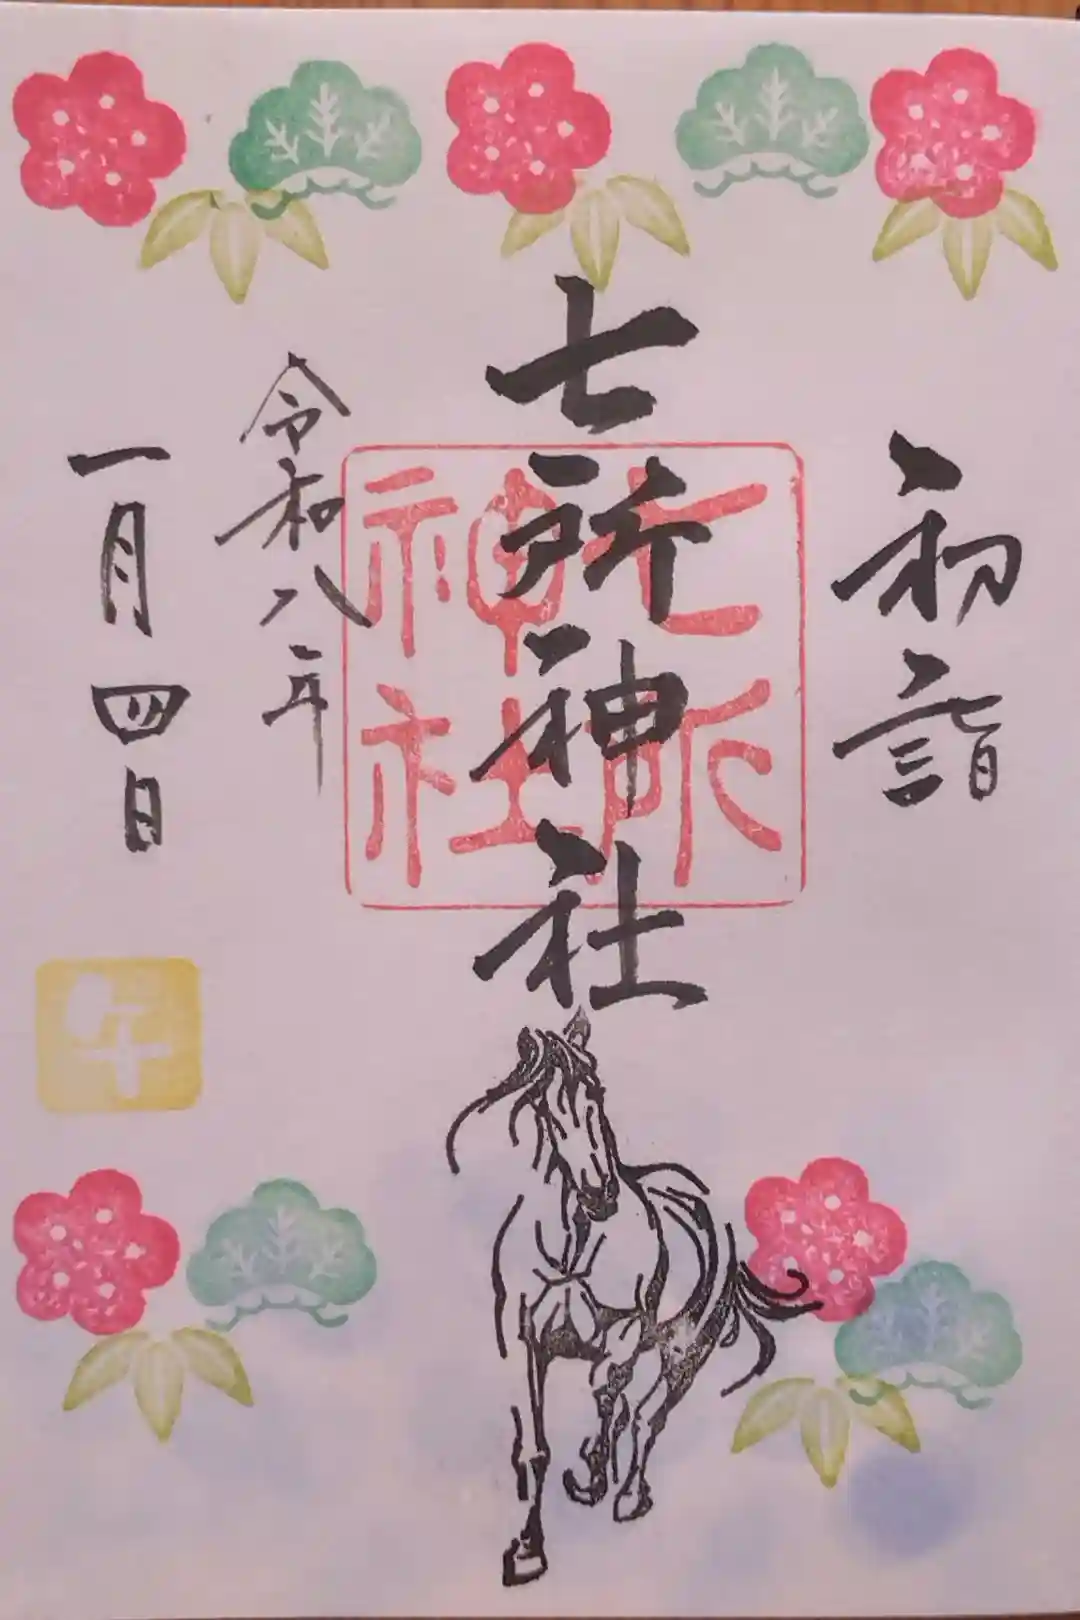 初詣
七所神社
七所
神社
令和八年
一月四日
午